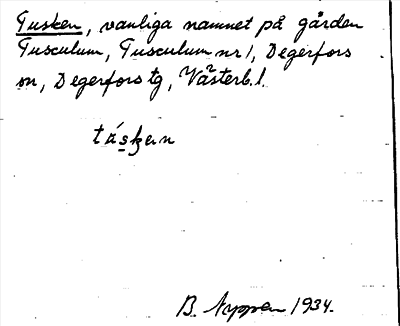 Tusken, vanliga namnet på gården
Tusculum, Tusculum nr 1, Degerfors
sn, Degerfors tg, Västerb. l.
B. Nyppen 1934.